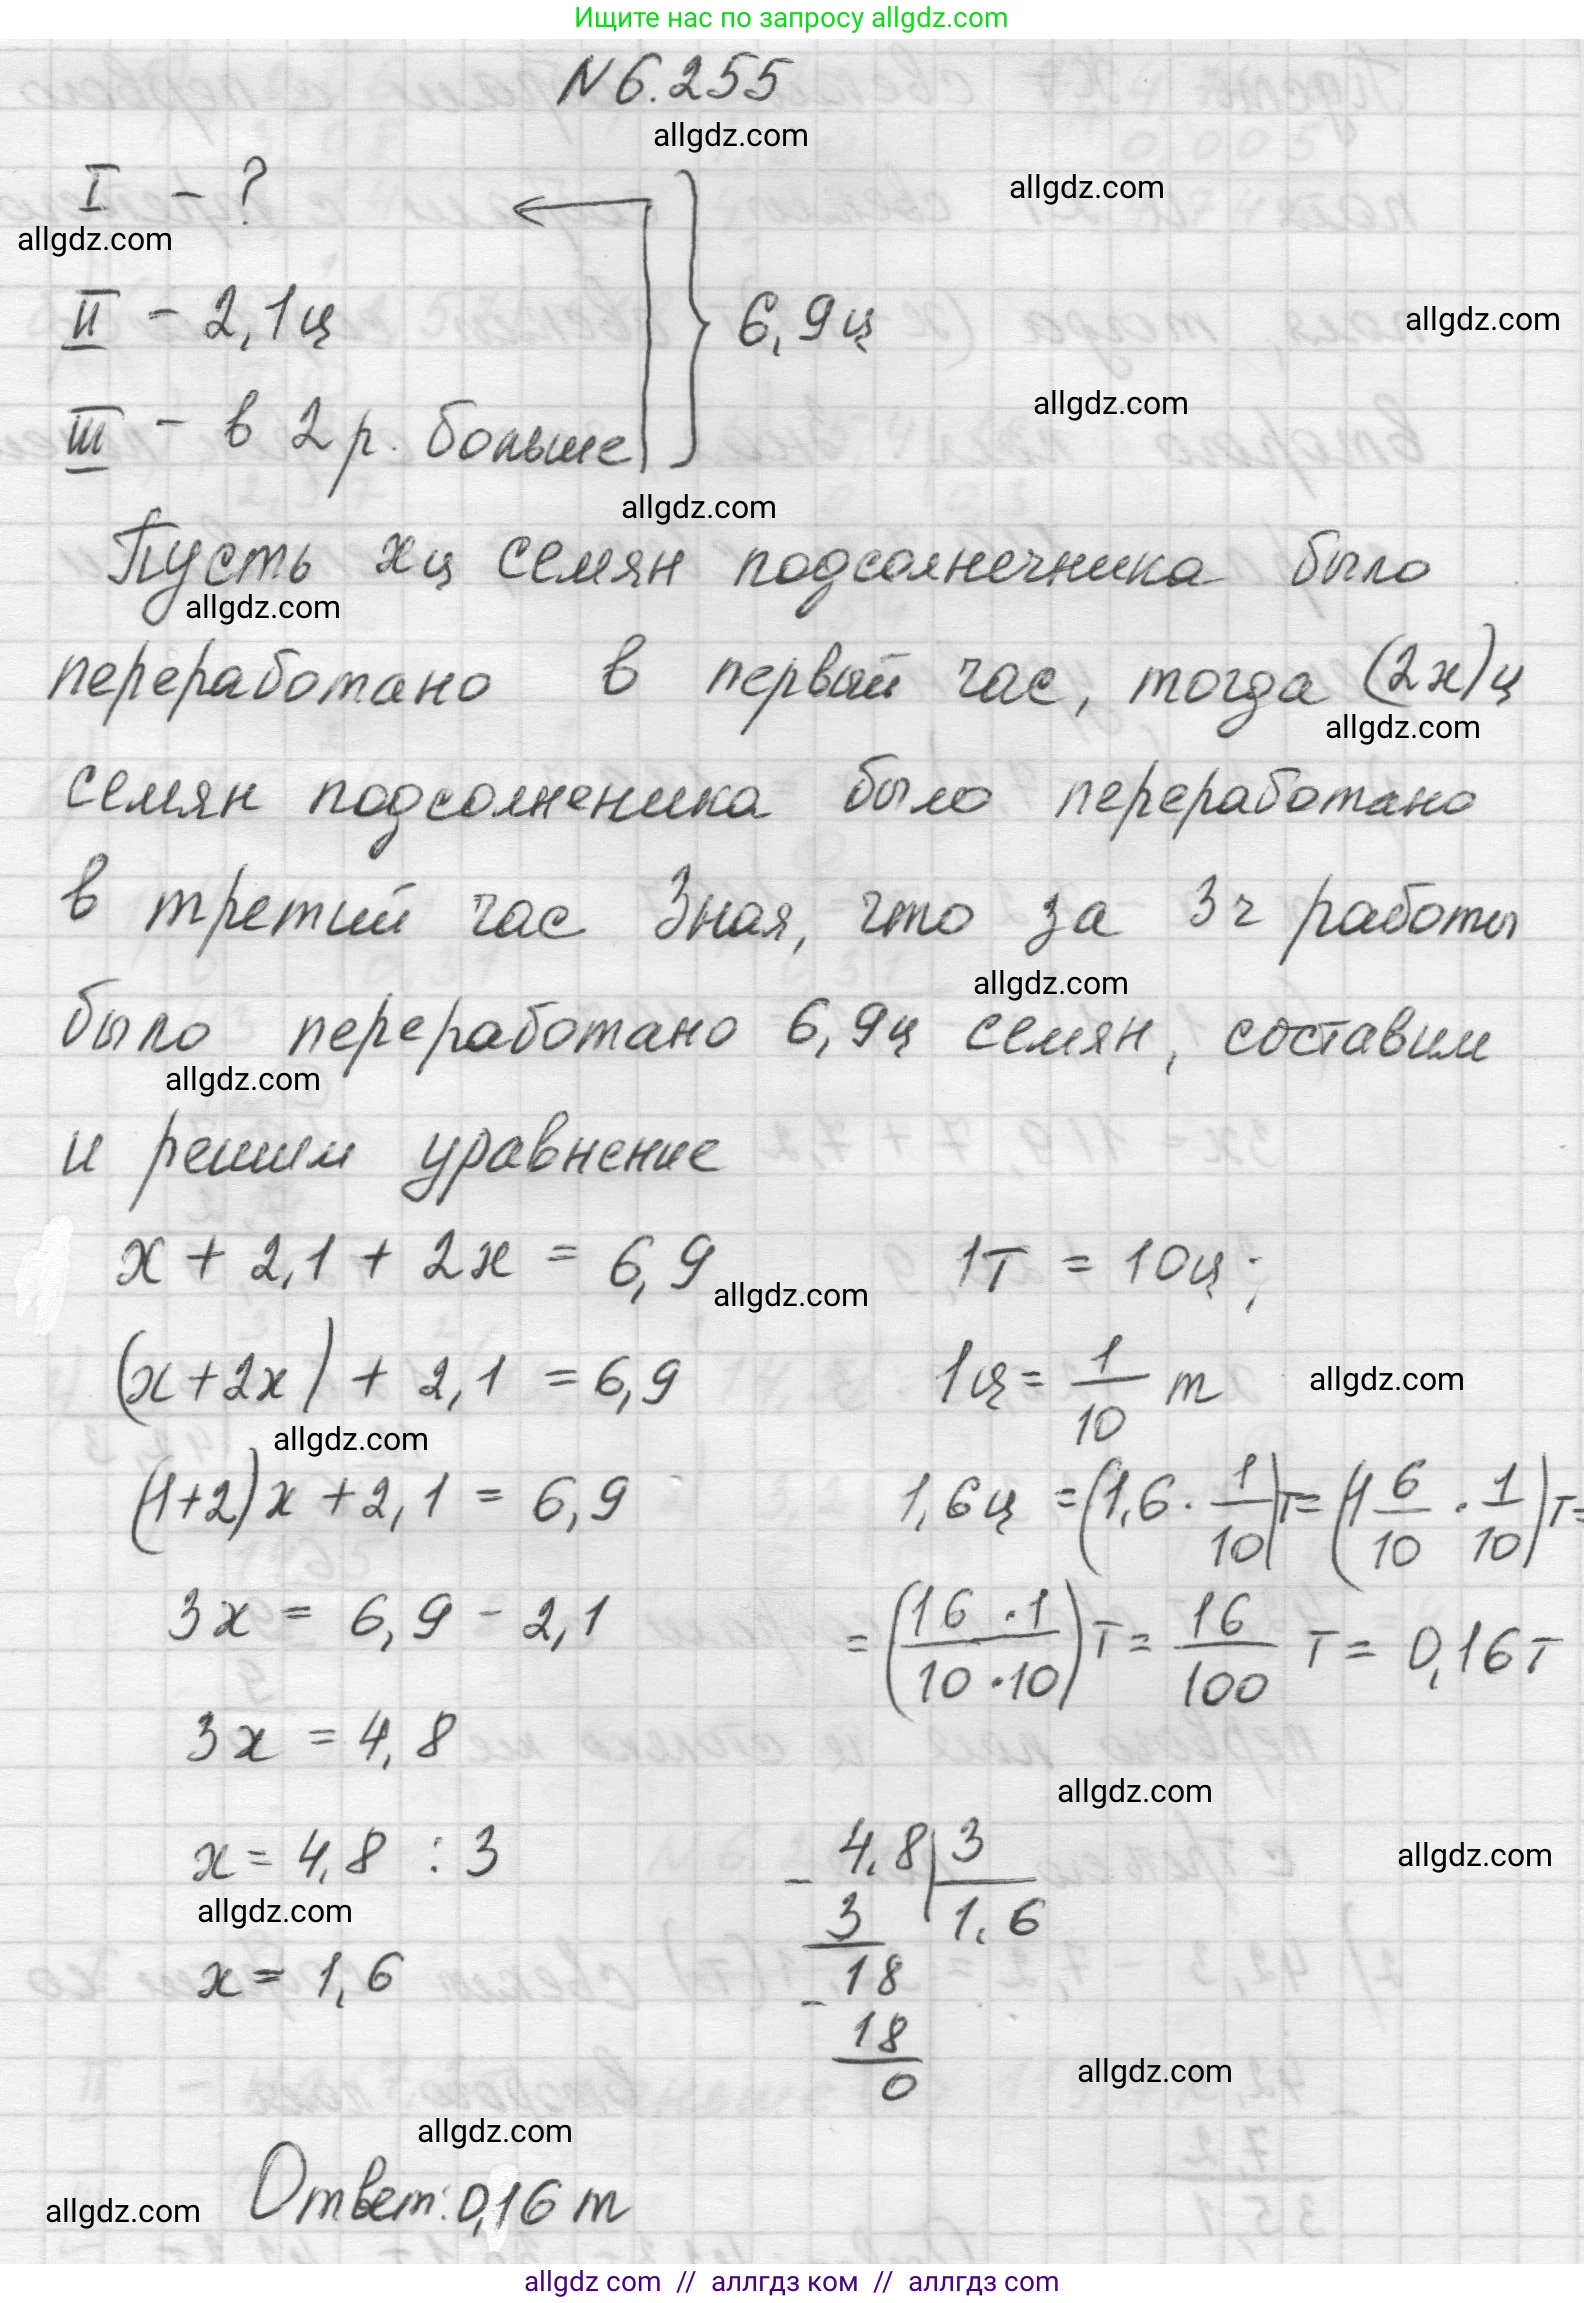 Ищите нас по запросу allgdz.com
N 6.255
allgdz.com
I - ?
allgdz.com
allgdz.com
II - 2,1ц
6,9ц
allgdz.com
allgdz.com
III - в 2 р. больше
allgdz.com
Пусть xц семян подсолнечника было
allgdz.com
переработано в первый час, тогда (2x)ц
allgdz.com
семян подсолненика было переработано
в третий час Зная, что за 3ч работы
allgdz.com
было переработано 6,9ц семян, составим
allgdz.com
и решим уравнение
x + 2,1 + 2x = 6,9
1т = 10ц;
allgdz.com
(x+2x) + 2,1 = 6,9
1ц = 1/10 т
allgdz.com
allgdz.com
(1+2)x + 2,1 = 6,9
1,6ц = (1,6 · 1/10)т = (1 6/10 · 1/10)т =
3x = 6,9 - 2,1
= (16 · 1/10 · 10)т = 16/100 т = 0,16т
3x = 4,8
allgdz.com
x = 4,8 : 3
- 4,8 | 3
allgdz.com
allgdz.com
3 1,6
x = 1,6
- 18
18
0
allgdz.com
allgdz.com
Ответ: 0,16 т
allgdz.com
allgdz com // аллгдз ком // аллгдз com